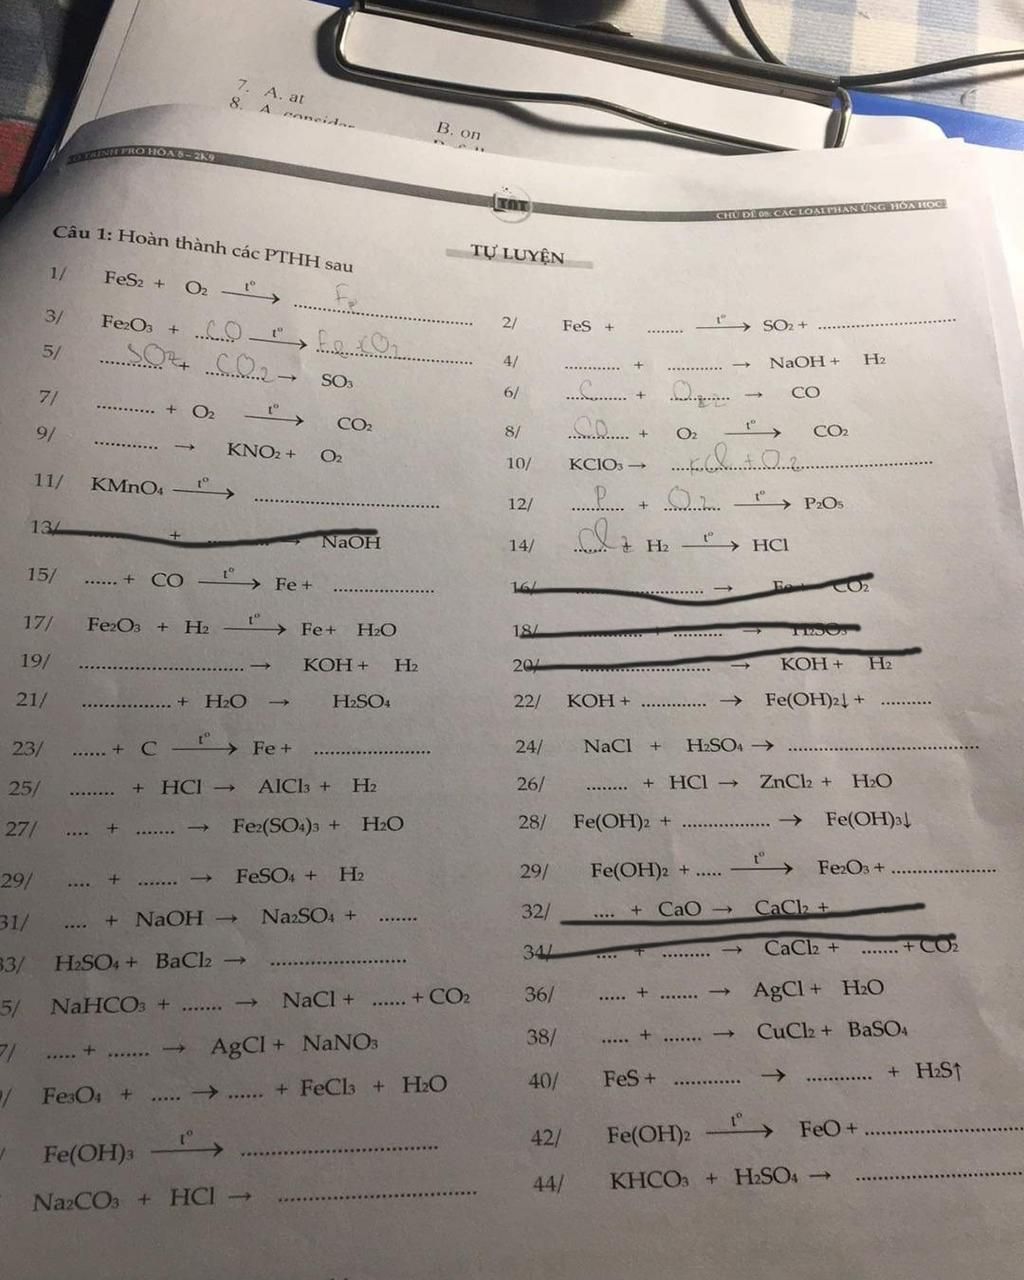 7. A. at
B. on
8. A. consider
LỘ TRÌNH PRO HÓA 8 – 2K9
CHỦ ĐỀ 08: CÁC LOẠI PHẢN ỨNG HÓA HỌC
TỰ LUYỆN
Câu 1: Hoàn thành các PTHH sau
1/ FeS₂ + O₂ —t°→ Fe..............
2/ FeS + ....... —t°→ SO₂ + ..............
3/ Fe₂O₃ + CO —t°→ Fe + CO₂
4/ ............ + ............ → NaOH + H₂
5/ SO₂ + CO₂ → SO₃
6/ C + O₂ → CO
7/ ............ + O₂ —t°→ CO₂
8/ CO + O₂ —t°→ CO₂
9/ ............ → KNO₂ + O₂
10/ KClO₃ → KCl + O₂
11/ KMnO₄ —t°→ ..............
12/ P + O₂ —t°→ P₂O₅
13/ ............ + ............ → NaOH
14/ Cl₂ + H₂ —t°→ HCl
15/ ...... + CO —t°→ Fe + ..............
16/ ............ → Fe + CO₂
17/ Fe₂O₃ + H₂ —t°→ Fe + H₂O
18/ ............ + ............ → H₂SO₃
19/ .............. → KOH + H₂
20/ .............. → KOH + H₂
21/ .............. + H₂O → H₂SO₄
22/ KOH + ............ → Fe(OH)₂↓ + .........
23/ ...... + C —t°→ Fe + ..............
24/ NaCl + H₂SO₄ → ..............
25/ ........ + HCl → AlCl₃ + H₂
26/ ........ + HCl → ZnCl₂ + H₂O
27/ .... + ....... → Fe₂(SO₄)₃ + H₂O
28/ Fe(OH)₂ + .............. → Fe(OH)₃↓
29/ .... + ....... → FeSO₄ + H₂
29/ Fe(OH)₂ + ..... —t°→ Fe₂O₃ + ..............
31/ .... + NaOH → Na₂SO₄ + .......
32/ .... + CaO → CaCl₂ +
33/ H₂SO₄ + BaCl₂ → ..............
34/ .... + ......... → CaCl₂ + ....... + CO₂
5/ NaHCO₃ + ....... → NaCl + ...... + CO₂
36/ ..... + ....... → AgCl + H₂O
7/ ..... + ....... → AgCl + NaNO₃
38/ ..... + ....... → CuCl₂ + BaSO₄
/ Fe₃O₄ + ..... → ...... + FeCl₃ + H₂O
40/ FeS + ............ → ............ + H₂S↑
/ Fe(OH)₃ —t°→ ..............
42/ Fe(OH)₂ —t°→ FeO + ..............
Na₂CO₃ + HCl → ..............
44/ KHCO₃ + H₂SO₄ → ..............